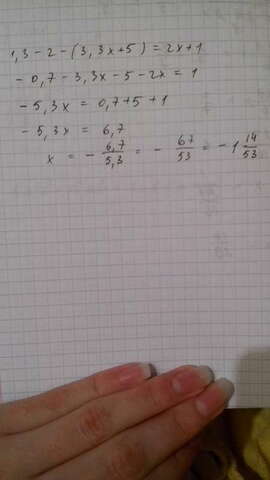 1,3 - 2 - (3,3x+5) = 2x+1
- 0,7 - 3,3x - 5 - 2x = 1
- 5,3x = 0,7+5+1
- 5,3x = 6,7
x = - 6,7/5,3 = - 67/53 = -1 14/53